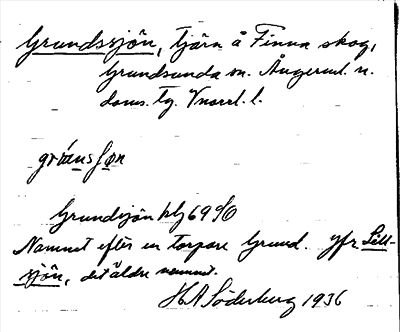 Grundssjön, tjärn å Finna skog,
Grundsunda sn. Ångerml. n.
doms. tg. Vnorrl. l.
Grundsjön blj 69 SO
Namnet efter en torpare Grund. Jfr Lill-
sjön, det äldre namnet.
H A Söderberg 1936